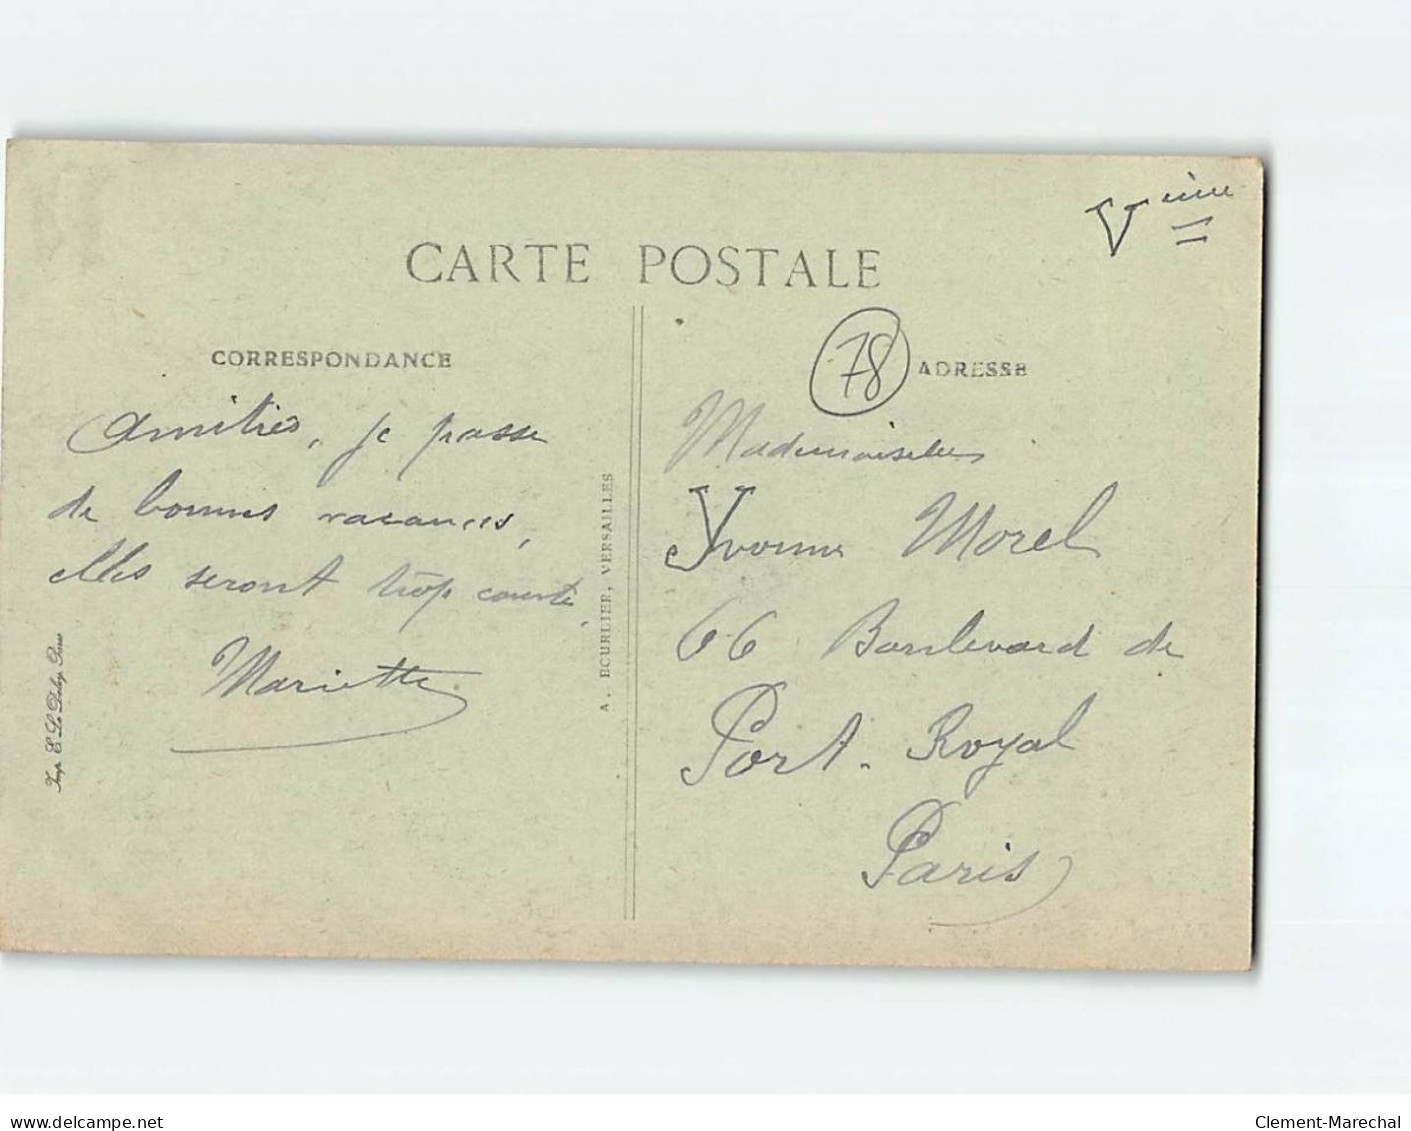 V ième
CARTE POSTALE
CORRESPONDANCE
78
ADRESSE
Amitiés, je passe
de bonnes vacances,
elles seront trop courtes,
Mariette
A. BOURLIER, VERSAILLES
Imp. E. Le Deley, Paris
Mademoiselle
Yvonne Morel
66 Boulevard de
Port-Royal
Paris
delcampe.net
Clement-Marechal